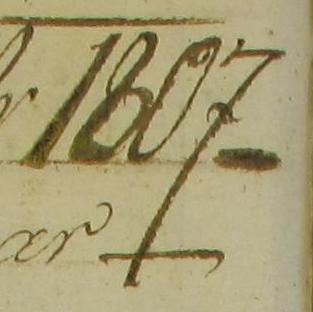 r 1807
xr